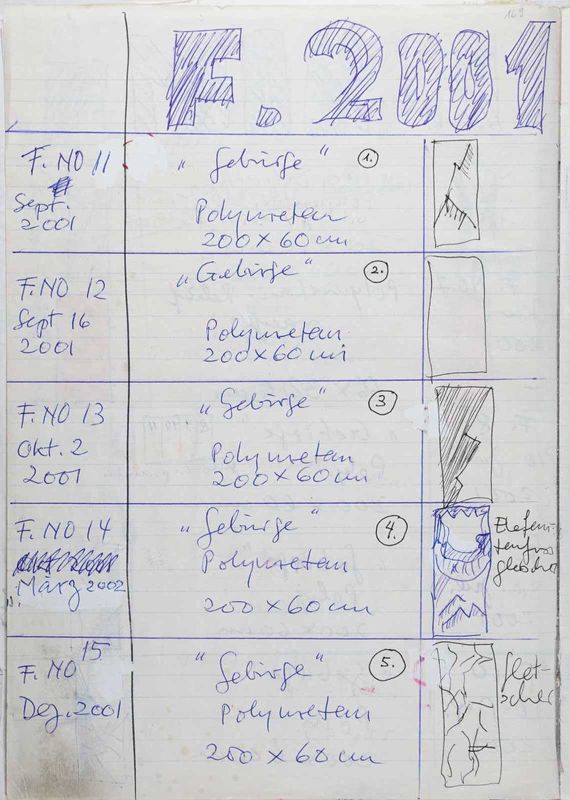 169
F. 2001
F. NO 11
Sept.
2001
„Gebirge“ 1.
Polyuretan
200 x 60 cm
F. NO 12
Sept 16
2001
„Gebirge“ 2.
Polyuretan
200 x 60 cm
F. NO 13
Okt. 2
2001
„Gebirge“ 3
Polyuretan
200 x 60 cm
F. NO 14
März 2002
„Gebirge“ 4.
Polyuretan
200 x 60 cm
F. NO 15
Dez. 2001
„Gebirge“ 5.
Polyuretan
200 x 60 cm
Glet-
scher